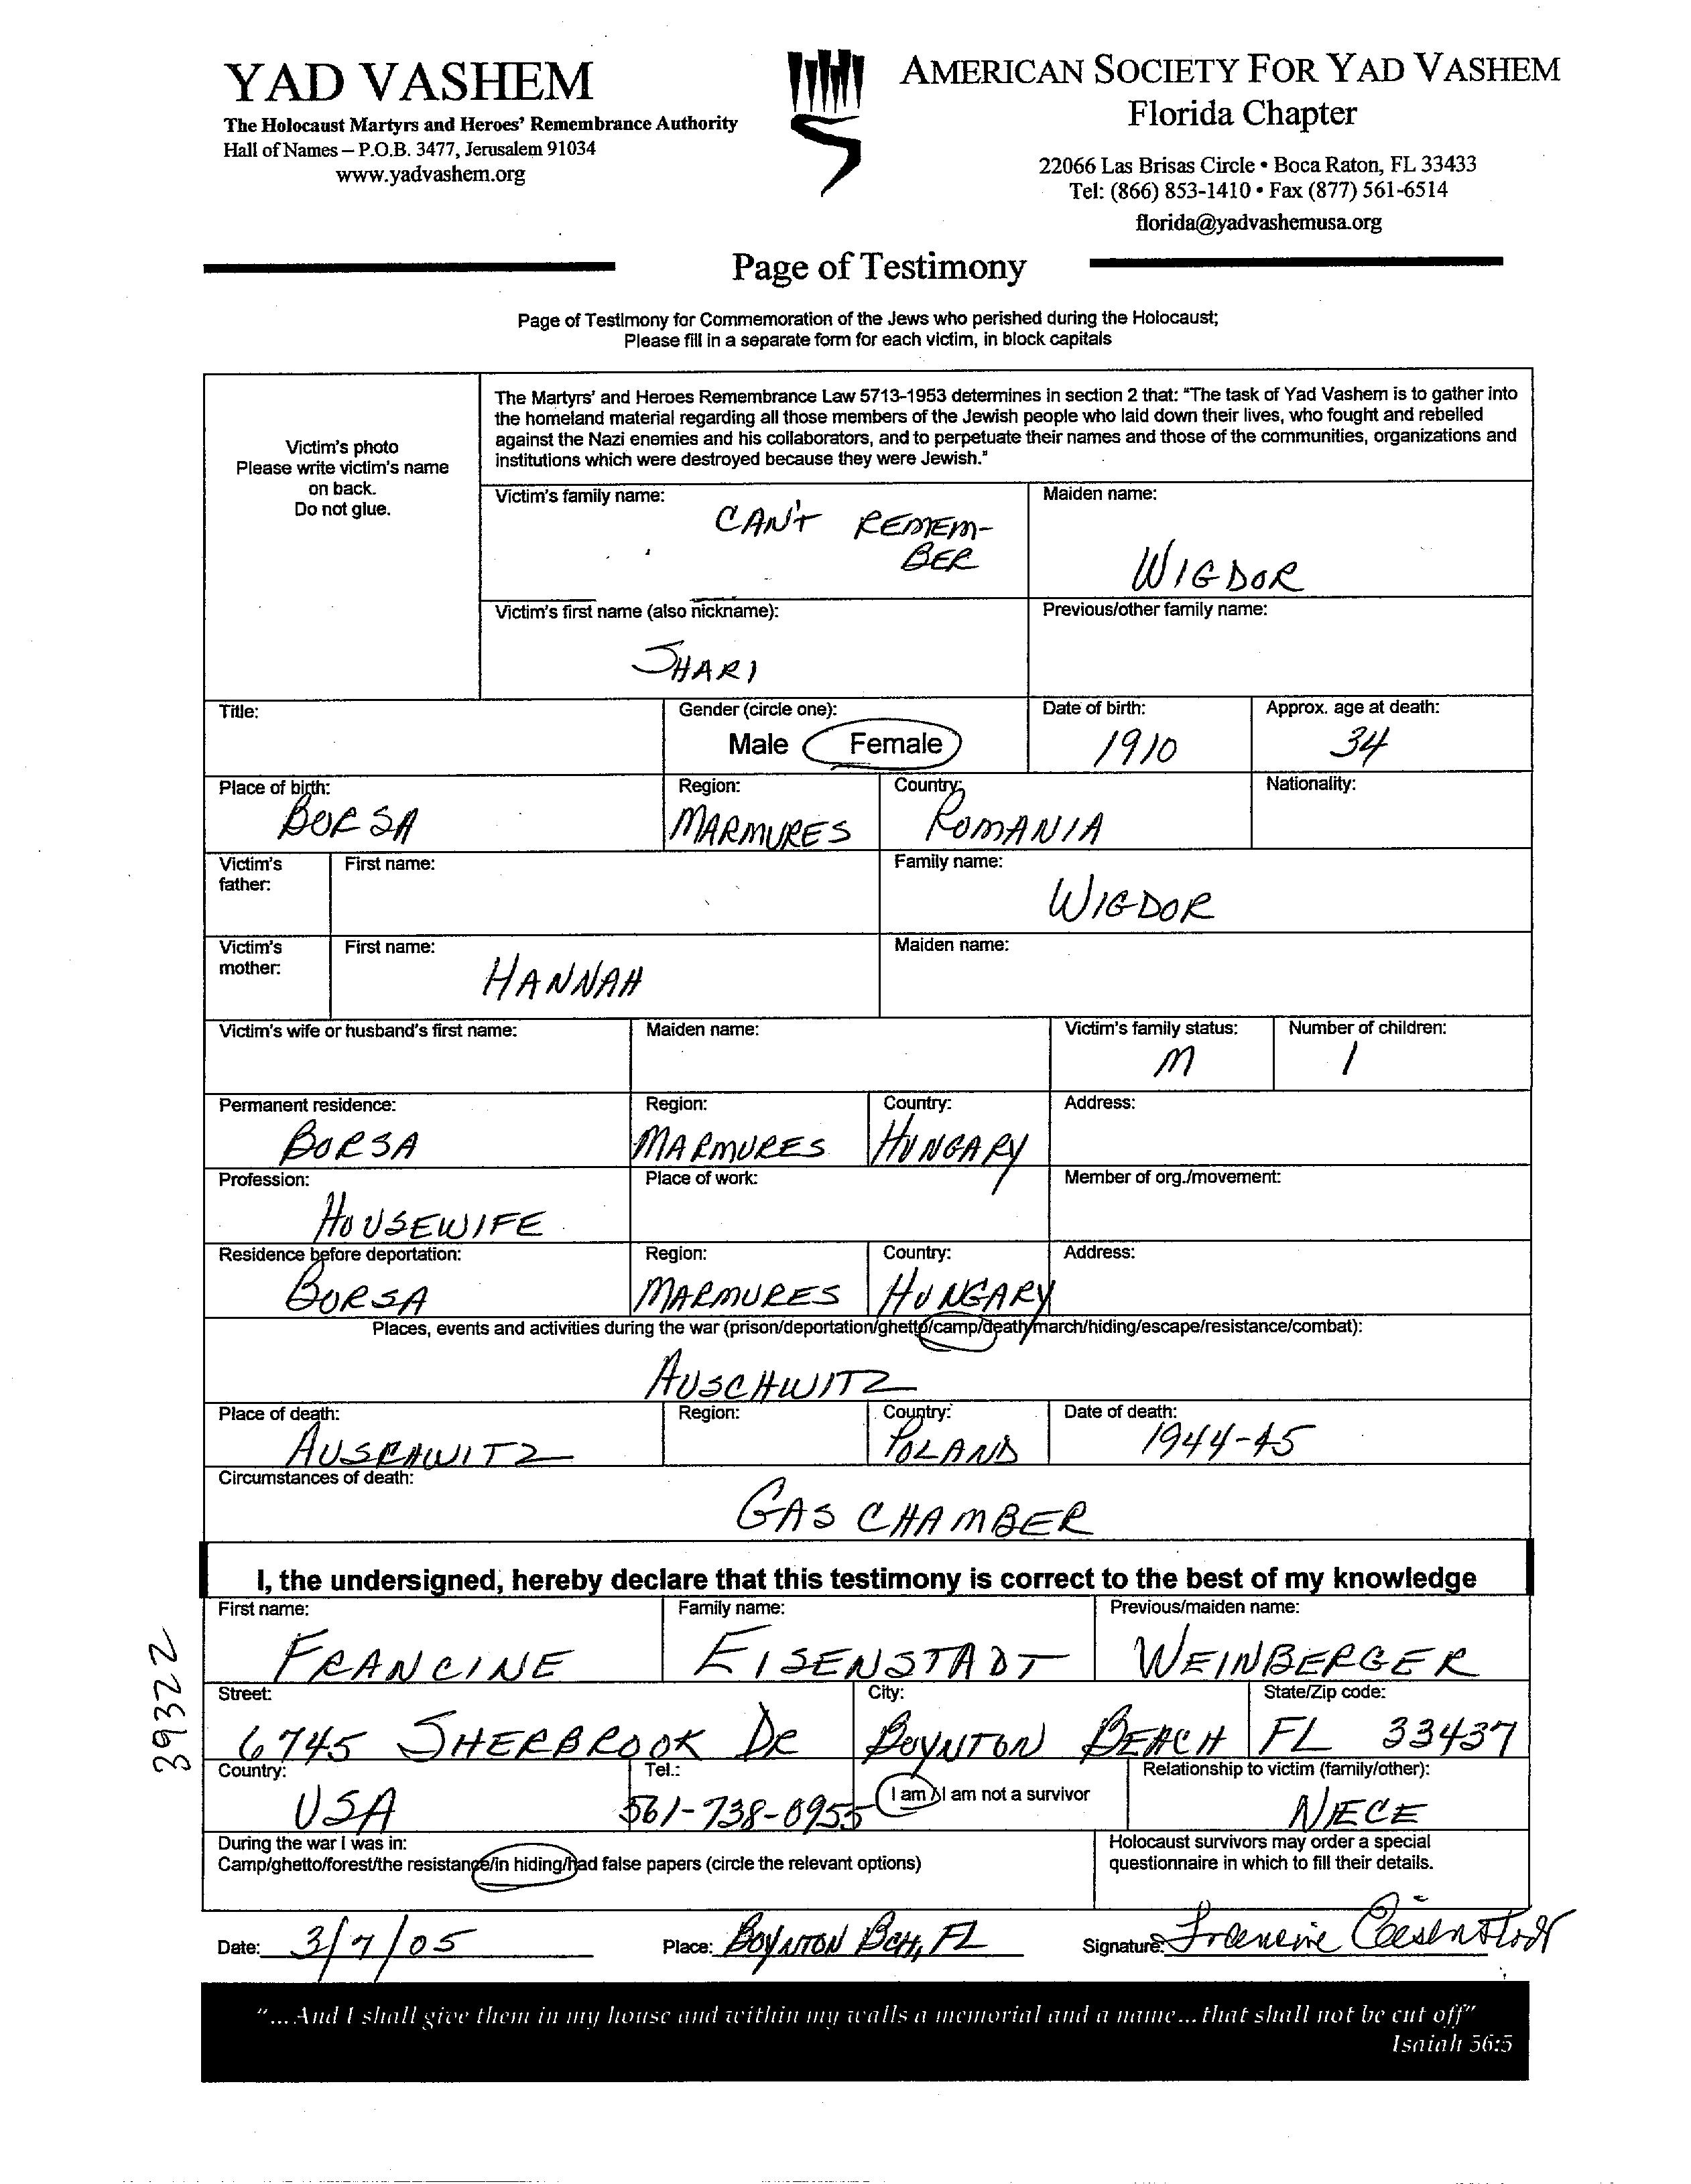 YAD VASHEM
The Holocaust Martyrs and Heroes' Remembrance Authority
Hall of Names – P.O.B. 3477, Jerusalem 91034
www.yadvashem.org
AMERICAN SOCIETY FOR YAD VASHEM
Florida Chapter
22066 Las Brisas Circle • Boca Raton, FL 33433
Tel: (866) 853-1410 • Fax (877) 561-6514
florida@yadvashemusa.org
Page of Testimony
Page of Testimony for Commemoration of the Jews who perished during the Holocaust;
Please fill in a separate form for each victim, in block capitals
Victim's photo
Please write victim's name
on back.
Do not glue.
The Martyrs' and Heroes Remembrance Law 5713-1953 determines in section 2 that: "The task of Yad Vashem is to gather into
the homeland material regarding all those members of the Jewish people who laid down their lives, who fought and rebelled
against the Nazi enemies and his collaborators, and to perpetuate their names and those of the communities, organizations and
institutions which were destroyed because they were Jewish."
Victim's family name: Maiden name:
CAN'T REMEM-
BER
WIGDOR
Victim's first name (also nickname): Previous/other family name:
SHARI
Title: Gender (circle one): Date of birth: Approx. age at death:
Male Female 1910 34
Place of birth: Region: Country: Nationality:
BORSA MARMURES ROMANIA
Victim's father: First name: Family name:
WIGDOR
Victim's mother: First name: Maiden name:
HANNAH
Victim's wife or husband's first name: Maiden name: Victim's family status: Number of children:
M 1
Permanent residence: Region: Country: Address:
BORSA MARMURES HUNGARY
Profession: Place of work: Member of org./movement:
HOUSEWIFE
Residence before deportation: Region: Country: Address:
BORSA MARMURES HUNGARY
Places, events and activities during the war (prison/deportation/ghetto/camp/death march/hiding/escape/resistance/combat):
AUSCHWITZ
Place of death: Region: Country: Date of death:
AUSCHWITZ POLAND 1944-45
Circumstances of death:
GAS CHAMBER
I, the undersigned, hereby declare that this testimony is correct to the best of my knowledge
First name: Family name: Previous/maiden name:
FRANCINE EISENSTADT WEINBERGER
Street: City: State/Zip code:
6745 SHERBROOK DR BOYNTON BEACH FL 33437
Country: Tel.: I am / I am not a survivor Relationship to victim (family/other):
USA 561-738-0955 NIECE
During the war I was in:
Camp/ghetto/forest/the resistance/in hiding/had false papers (circle the relevant options)
Holocaust survivors may order a special
questionnaire in which to fill their details.
Date: 3/7/05 Place: BOYNTON BCH, FL Signature: Francine Eisenstadt
39322
"...And I shall give them in my house and within my walls a memorial and a name...that shall not be cut off"
Isaiah 56:5